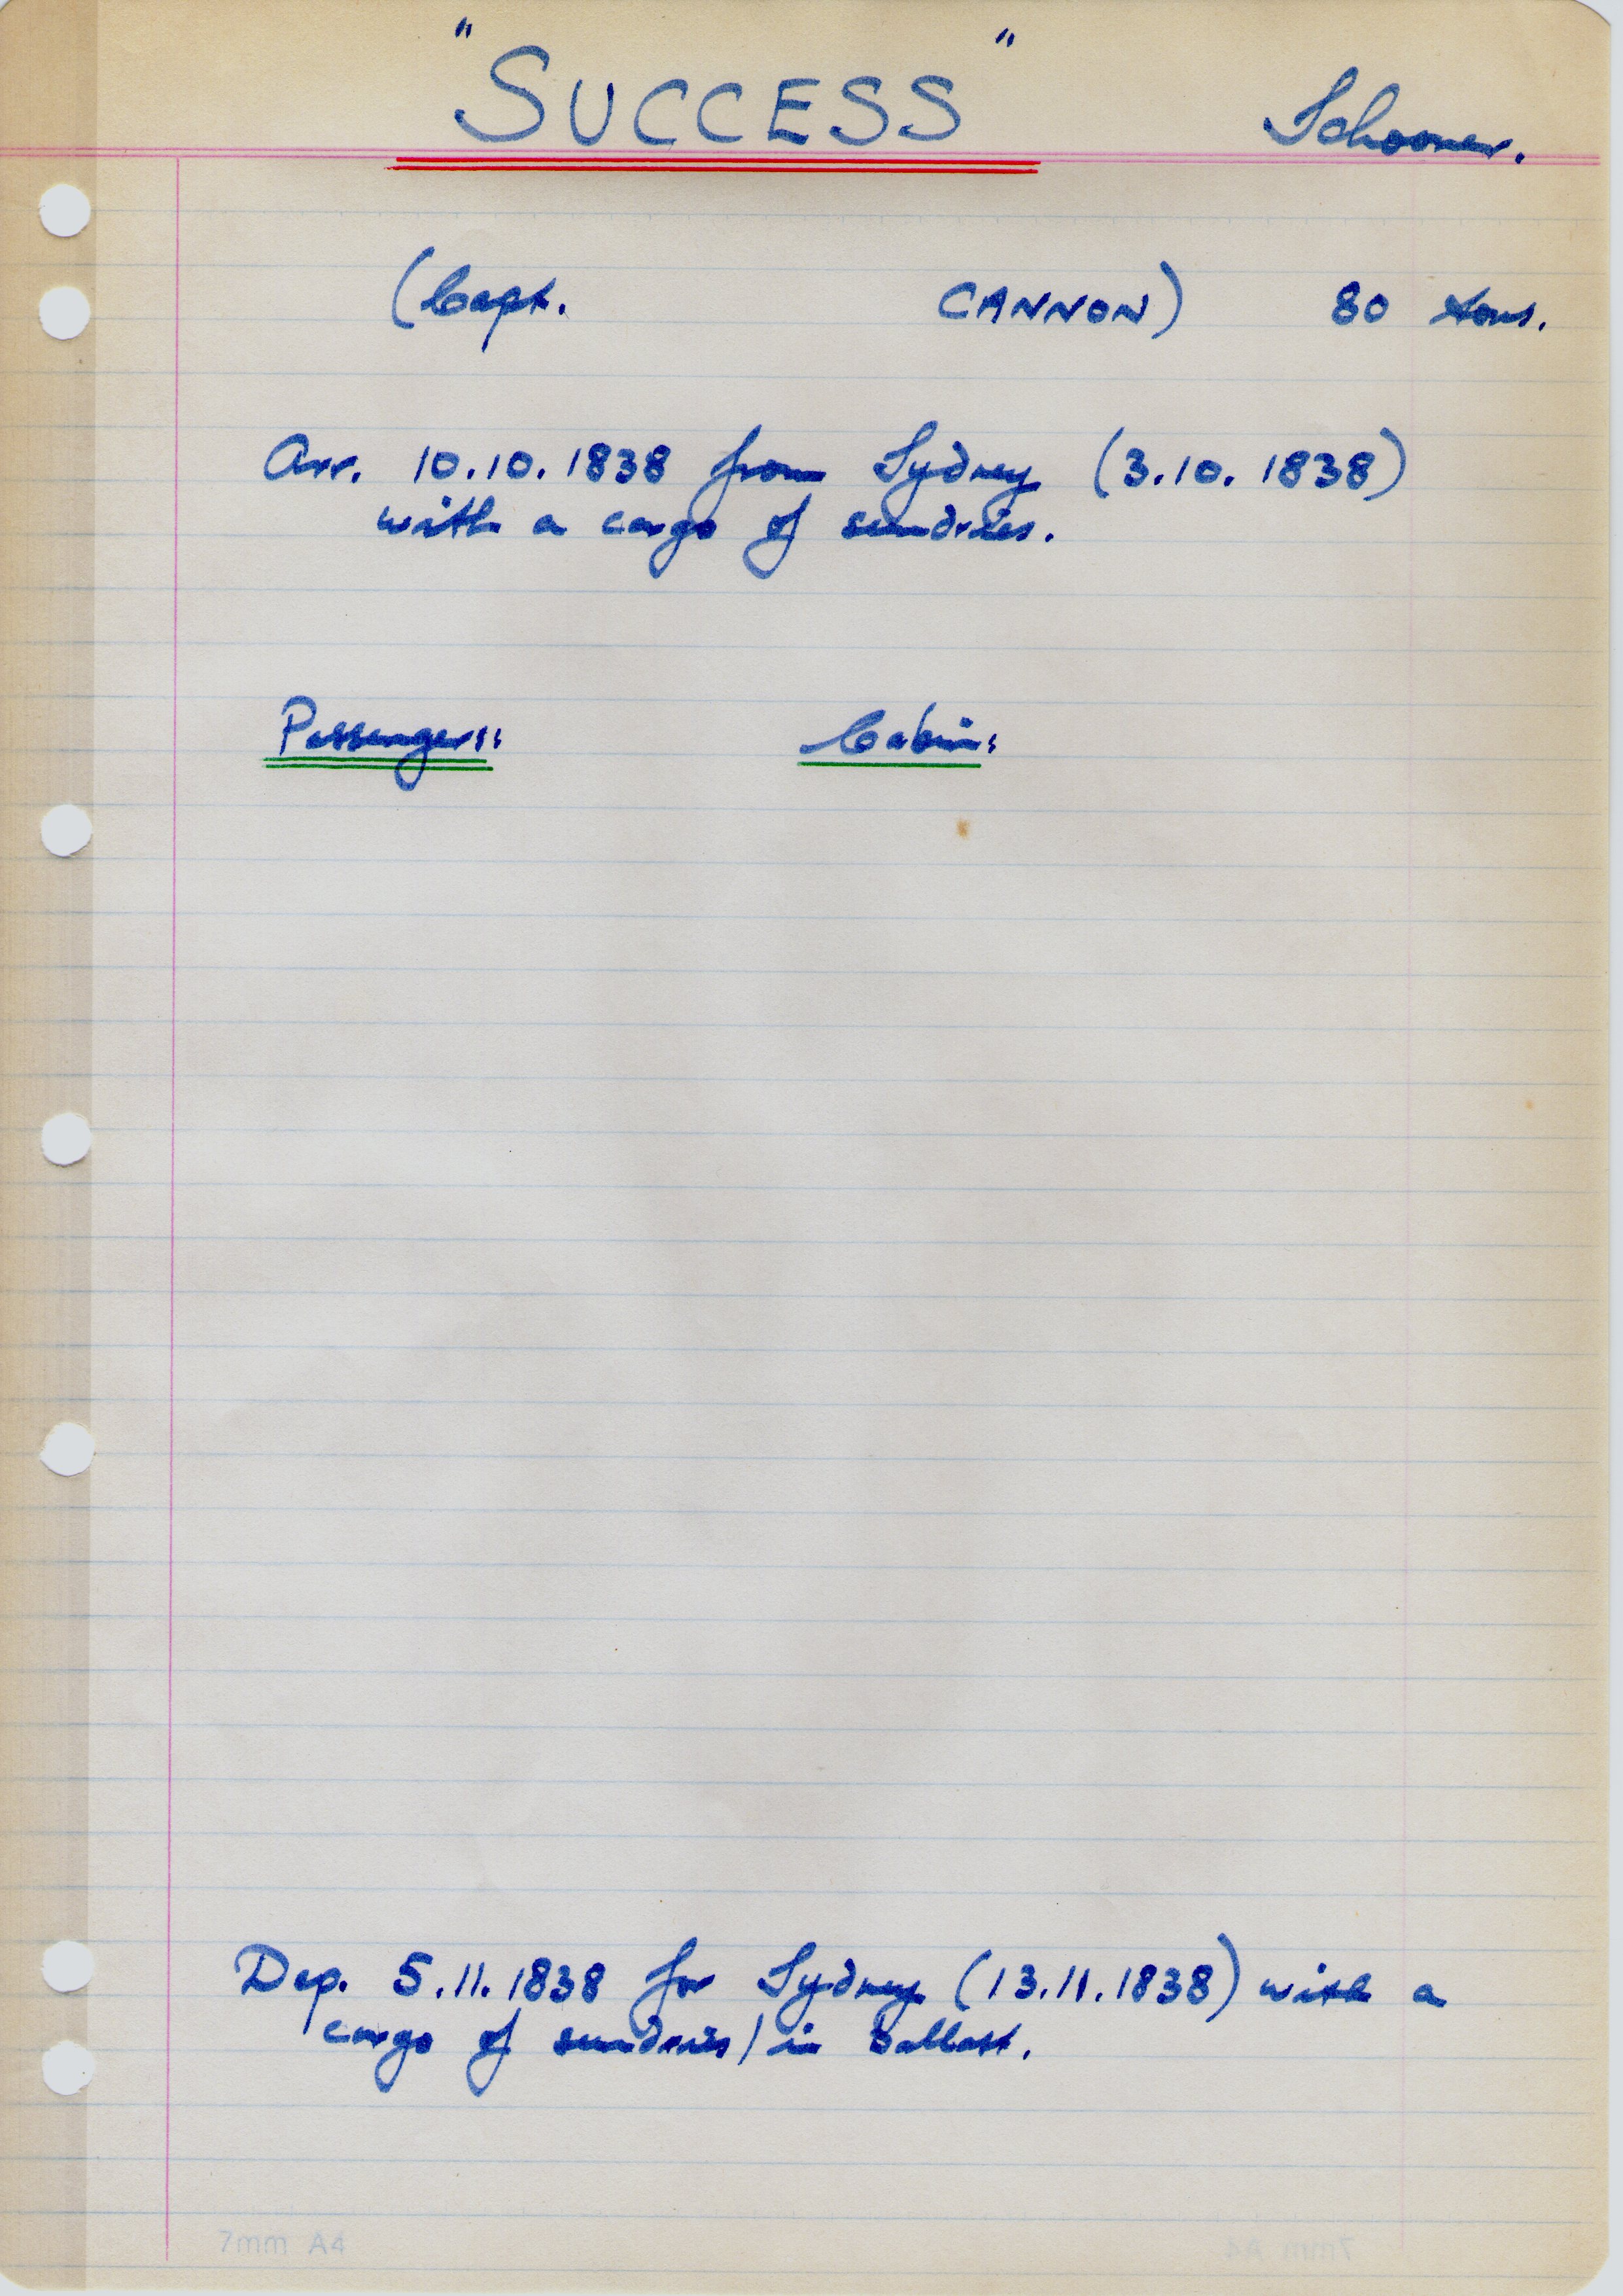 "SUCCESS" Schooner.
(Capt. CANNON) 80 tons.
Arr. 10.10.1838 from Sydney (3.10.1838)
with a cargo of sundries.
Passengers: Cabin:
Dep. 5.11.1838 for Sydney (13.11.1838) with a
cargo of sundries/in ballast.
7mm A4